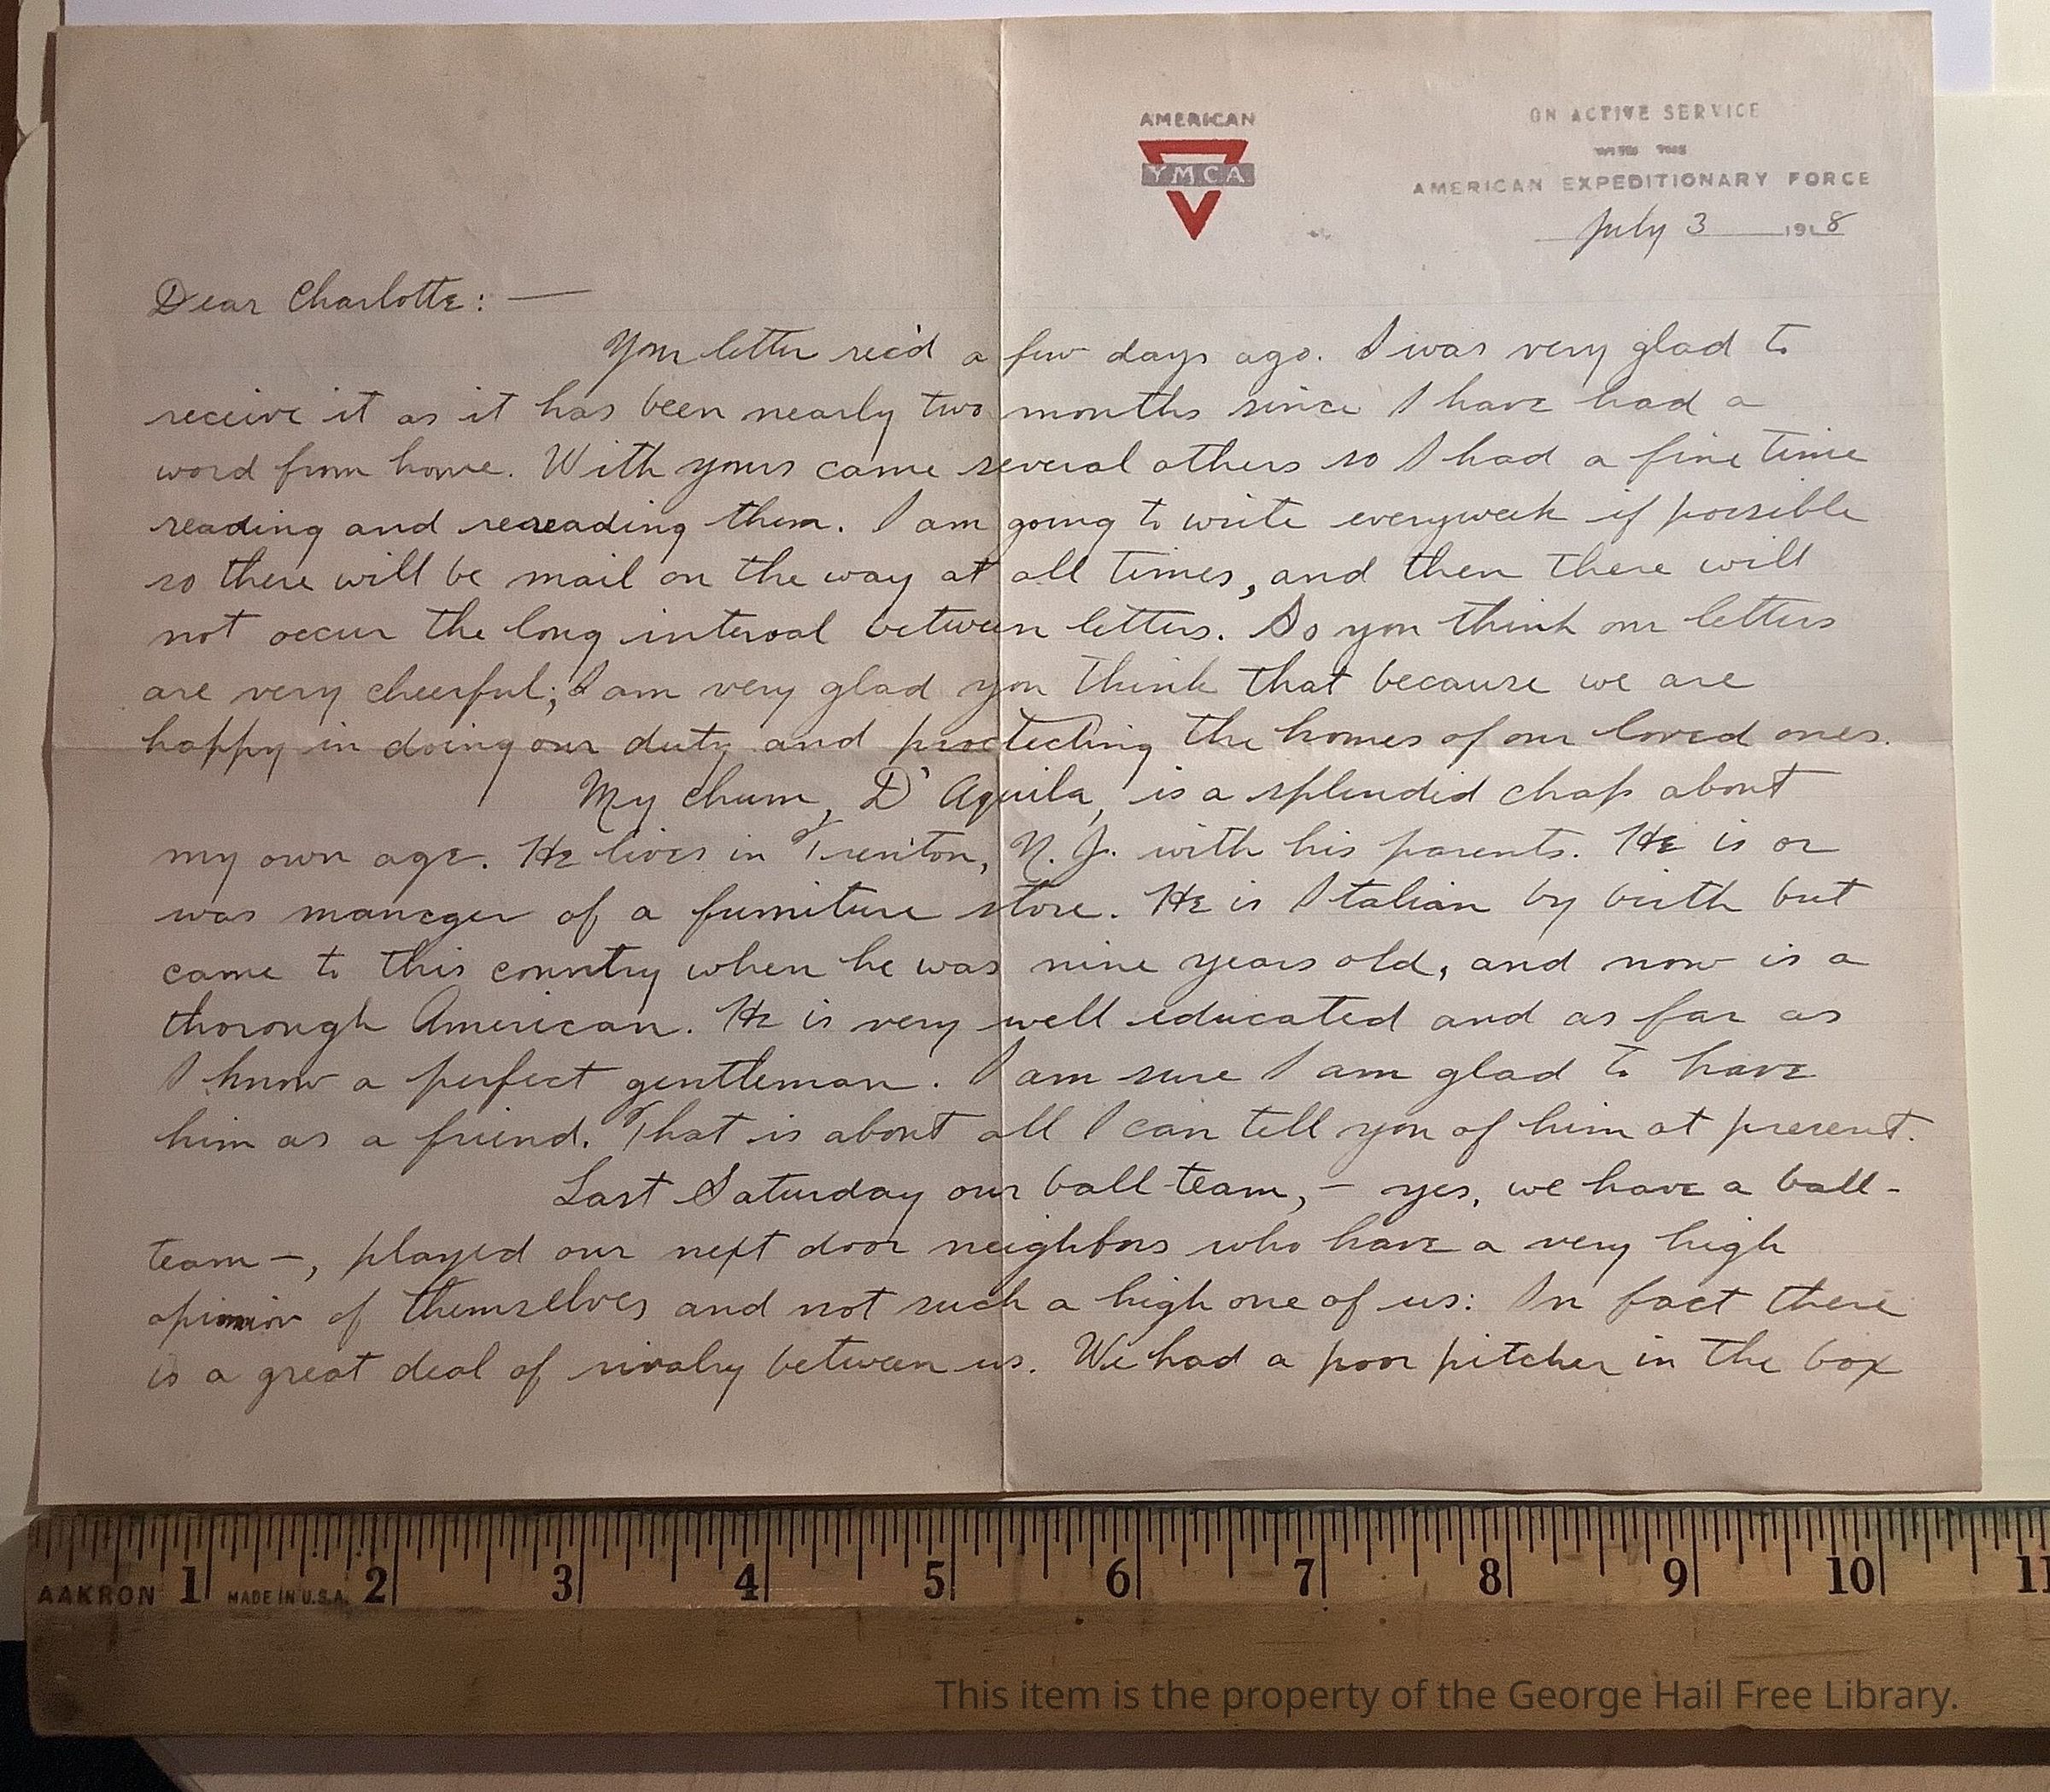 AMERICAN
YMCA
ON ACTIVE SERVICE
WITH THE
AMERICAN EXPEDITIONARY FORCE
July 3 1918
Dear Charlotte: —
Your letter rec'd a few days ago. I was very glad to
receive it as it has been nearly two months since I have had a
word from home. With yours came several others so I had a fine time
reading and rereading them. I am going to write everyweek if possible
so there will be mail on the way at all times, and then there will
not occur the long interval between letters. So you think our letters
are very cheerful; I am very glad you think that because we are
happy in doing our duty and protecting the homes of our loved ones.
My chum, D'Aquila, is a splendid chap about
my own age. He lives in Trenton, N. J. with his parents. He is or
was manager of a furniture store. He is Italian by birth but
came to this country when he was nine years old, and now is a
thorough American. He is very well educated and as far as
I know a perfect gentleman. I am sure I am glad to have
him as a friend. That is about all I can tell you of him at present.
Last Saturday our ball-team, — yes, we have a ball-
team —, played our next door neighbors who have a very high
opinion of themselves and not such a high one of us: In fact there
is a great deal of rivalry between us. We had a poor pitcher in the box
AAKRON 1 MADE IN U.S.A. 2 3 4 5 6 7 8 9 10 11
This item is the property of the George Hail Free Library.